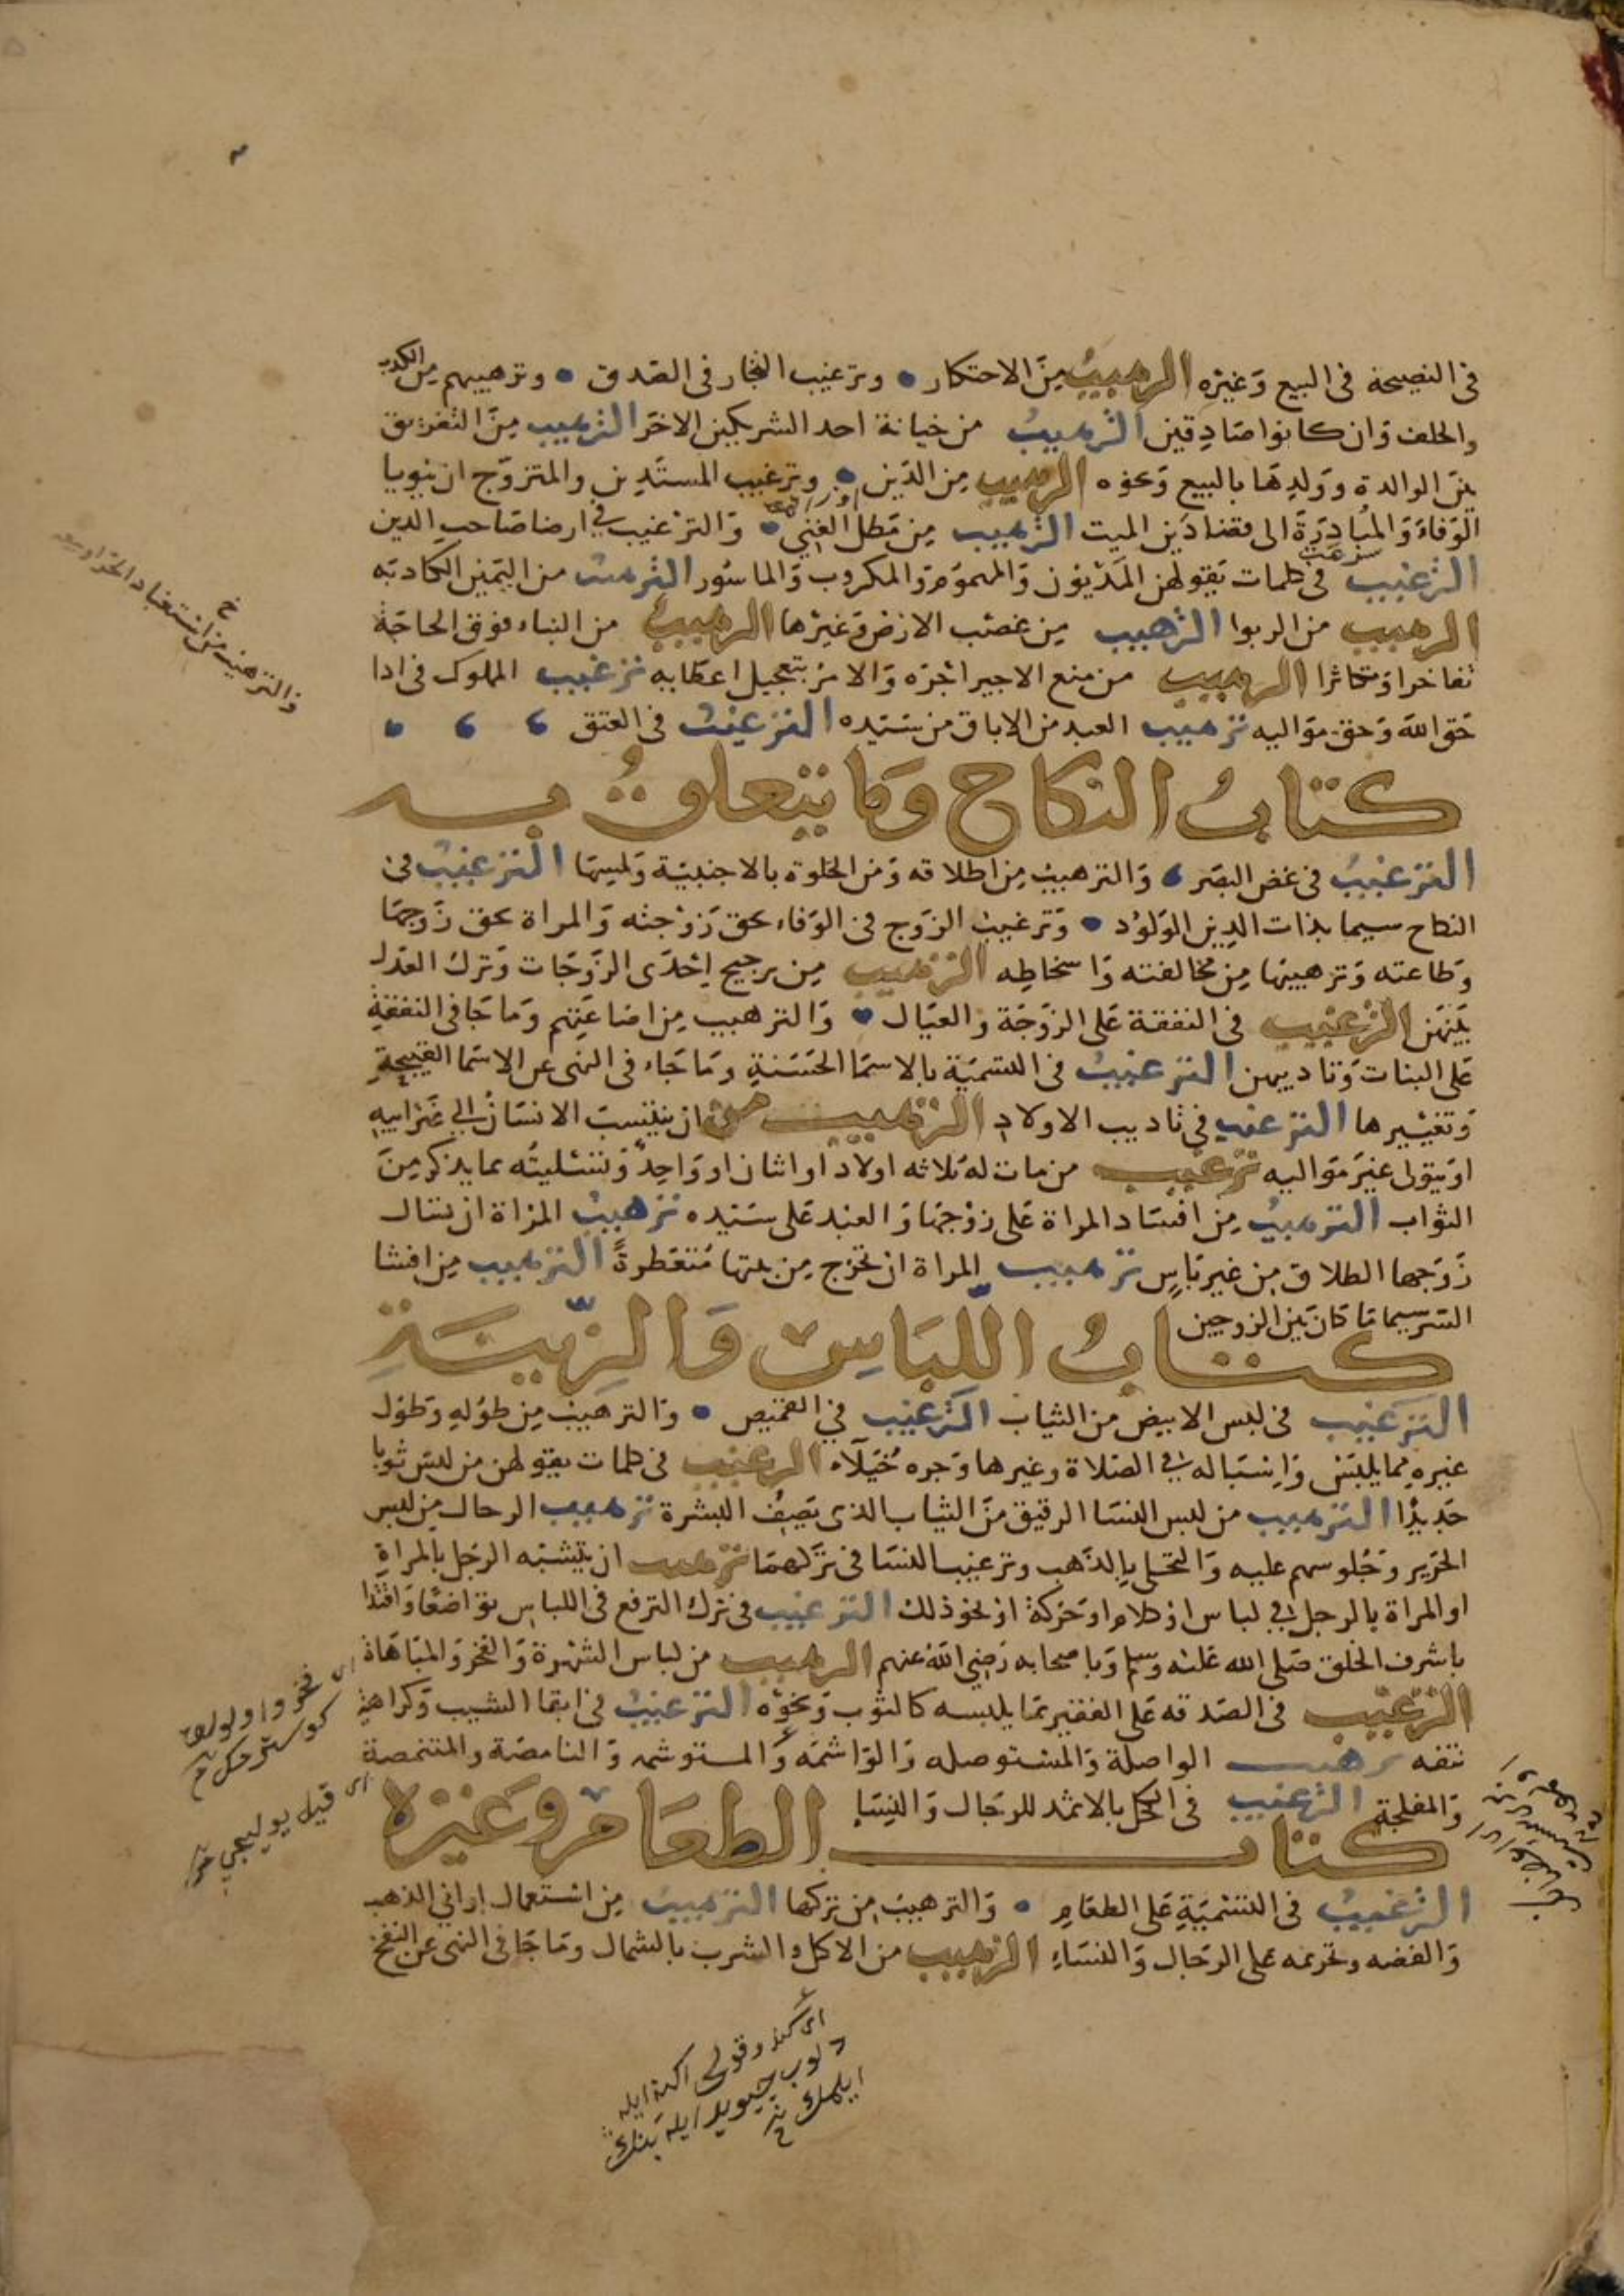 في النصيحة في البيع وَغيْرِه الترهيبُ مِنَ الاحتكار • وترغيب التجار في الصّدق • وترهيبهم مِن الكذب
والحلف وَان كانوا صَادِقين الترهيبُ من خيانة احد الشريكين الاخَر الترهيب مِنَ التفريق
بينَ الوالدة ووَلدِهَا بالبيع وَنحوه الترهيب مِن الدَّين • وترغيب المستَدِين والمتزوّج ان ينويا
الوَفاءَ وَالمُبَادَرَةَ الى قضاء دَين الميت الترهيب مِن مَطل الغَنِي • وَالترْغيب في ارضا صَاحب الدين
الترْغيب في كلمات يَقولهن المَدْيُون وَالمهموُم وَالمكروب وَالماسُور الترهيب من اليَمين الكاذبَه
الترهيب من الربوا الترهيب مِن غصْب الارَض وَغيْرها الترهيبُ من البناء فوق الحاجَة
تفاخرا وَتكاثرا الترهيب من منع الاجير اجْرَه وَالامرُ بتعجيل اعطايه ترغيب المملوك في ادا
حَق اللّه وَحَق مَوَاليه ترهيب العبد من الاباق من سَيّده الترغيبُ في العتق
كتابُ النكاح وَما يتعلقُ به
الترغيبُ في غض البصَر وَالترهيب مِن اطلاقه وَمن الخلوة بالاجنبيّة وَلمسِهَا الترغيبُ في
النكاح سيما بذات الدِين الوَلوُد • وَترغيبُ الزوَج في الوَفاء بحق زَوْجته وَالمراة بحق زَوجهَا
وَطاعته وَترهيبها مِن مخالفته وَاسخاطِه الترهيب مِن ترجيح اِحْدَى الزَّوجَات وَترك العَدْل
بَيْنهَن الترغيب في النفقة عَلى الزوَجَة وَالعيَال • وَالترهيب مِن اضَاعَتِهم وَمَا جَا في النفقةِ
عَلى البنات وَتاديبهن الترغيبُ في التسْمَيَة بالاسمَا الحَسَنةِ وَمَا جَاء في النهى عن الاسمَا القبيحةِ
وَتغيْيرها الترغيب في تاديب الاولادِ الترهيب من ان ينتسبَ الانسَانُ الي غَيْر ابيه
او يَتولى غيَر مَوَاليه ترغيب من مات لهُ ثلاثه اولاد او اثنان او وَاحِدٌ وَتسْليتُه بما يذكر مِنَ
الثواب الترهيبُ مِن افسَاد المراة عَلى زَوْجهَا وَالعبْد عَلى سَيّده ترهيبُ المرْاة ان تسَال
زَوَجها الطلاق مِن غير بَاسٍ ترهيب المراة ان تخرج مِن بيتها مُتعَطرةً الترهيب مِن افشا
السّر سيما مَا كان بَين الزوجين
كتابُ اللبَاسِ وَالزِّينَةِ
الترَغيبُ في لبس الابيض من الثياب الترْغيب في القميص • وَالترهيبُ مِن طوُلهِ وَطوُل
غيرهِ مِما يلبسَ وَاسْبَاله في الصَلاة وغيرها وَجره خُيَلآء الترغيب في كلمات يقولهن من لبسَ ثوبا
جَديدًا الترهيب من لبس النسَا الرقيق مِنَ الثياب الذي يَصِفُ البشرة ترهيب الرجال مِن لبس
الحَرير وَجُلوسهم عليه وَالتحَلى بالذَهب وترغيب النسَا في ترَكهمَا ترهيب ان يتشبّه الرجَل بالمراةِ
او المراة بالرجل في لباس اوْ كلام او حَركةٍ او نحو ذلك الترغيب في ترك الترفع في اللباس تواضعًا وَاقتدا
باشرف الخلق صَلى الله عَليْه وسلم وَباصحابه رَضِي اللّه عنهم الترهيب من لباس الشهرة وَالفخر وَالمبَاهَاة
الترغيب في الصَدقه عَلى الفقير بمَا يلبسه كالثوب وَنحوْه الترغيبُ في ابقا الشيب وَكراهَةِ
نتفه ترهيب الواصلة وَالمسْتوصله وَالوَاشمَه وَالمستوشمه وَالنامصَة والمتنمصة
وَالمفلجة الترغيب في الكحل بالاثمد للرجَال وَالنِسَاءِ
كتاب الطعَام وَغَيْرَه
الترْغيبُ في التسْميَةِ عَلى الطعَامِ • وَالترهيبُ مِن تركها الترهيبُ مِن اسْتعمال اواني الذهب
وَالفضه وتحريمه على الرجَال وَالنسَاءِ الترهيب من الاكل والشرب بالشمال وَمَا جَا في النهى عن النفخ
وَالترهيب من استعباد الحر